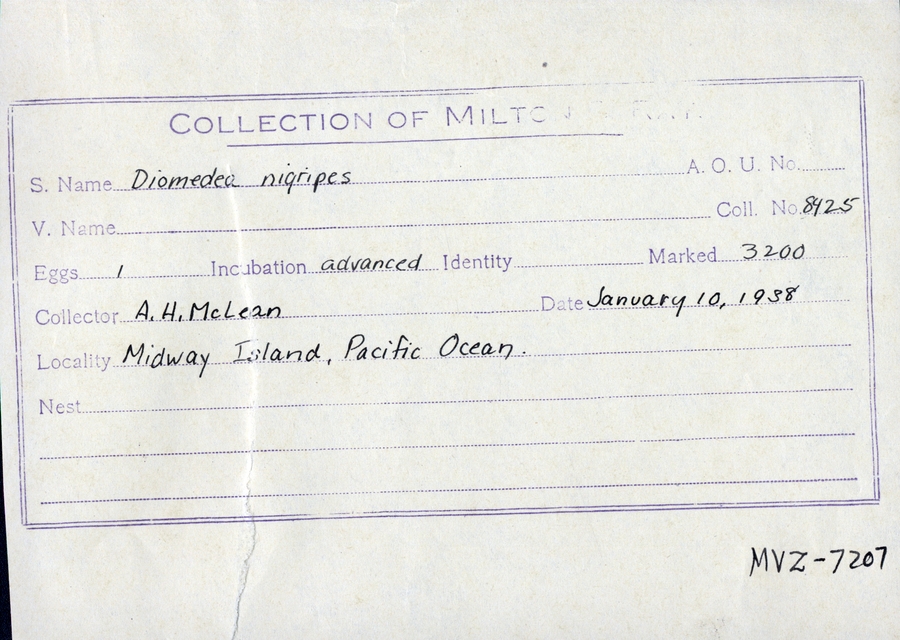 COLLECTION OF MILTON
S. Name Diomedea nigripes A. O. U. No.
V. Name Coll. No. 8425
Eggs 1 Incubation advanced Identity Marked 3200
Collector A. H. McLean Date January 10, 1938
Locality Midway Island, Pacific Ocean.
Nest
MVZ-7207